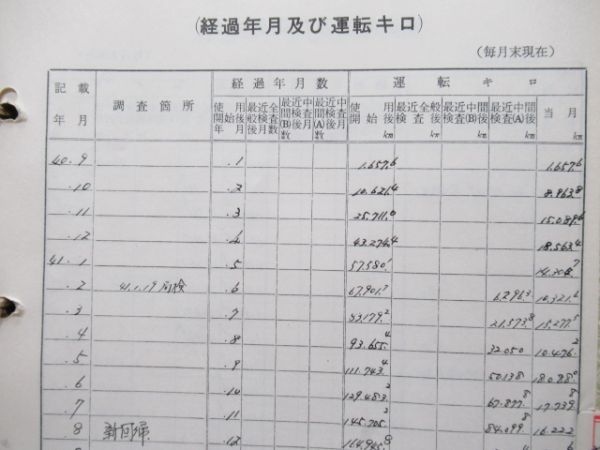 (経過年月及び運転キロ)
(毎月末現在)
記載年月 調査箇所 経過年月数 運転キロ
使用開始後年月 最近全般検査後月数 最近中間(B)検査後月数 最近中間(A)検査後月数 使用開始後km 最近全般検査後km 最近中間(B)検査後km 最近中間(A)検査後km 当月km
40.9 .1 1.657.6 1.657.6
.10 .2 10.621.4 8.963.8
.11 .3 25.711.0 15.089.6
.12 .4 43.274.4 18.563.4
41.1 .5 57.580.1
.2 .6 67.901.7 6.296.3 10.321.6
.3 .7 21.573.8 15.277.5
.4 .8 93.655.4 32.050 10.476.2
.5 .9 111.743.4 50.138 18.088.0
.6 .10 129.483.2 67.877.8 17.739.8
.7 .11 145.705.2 84.099.8 16.222
.8 .12 164.945.8